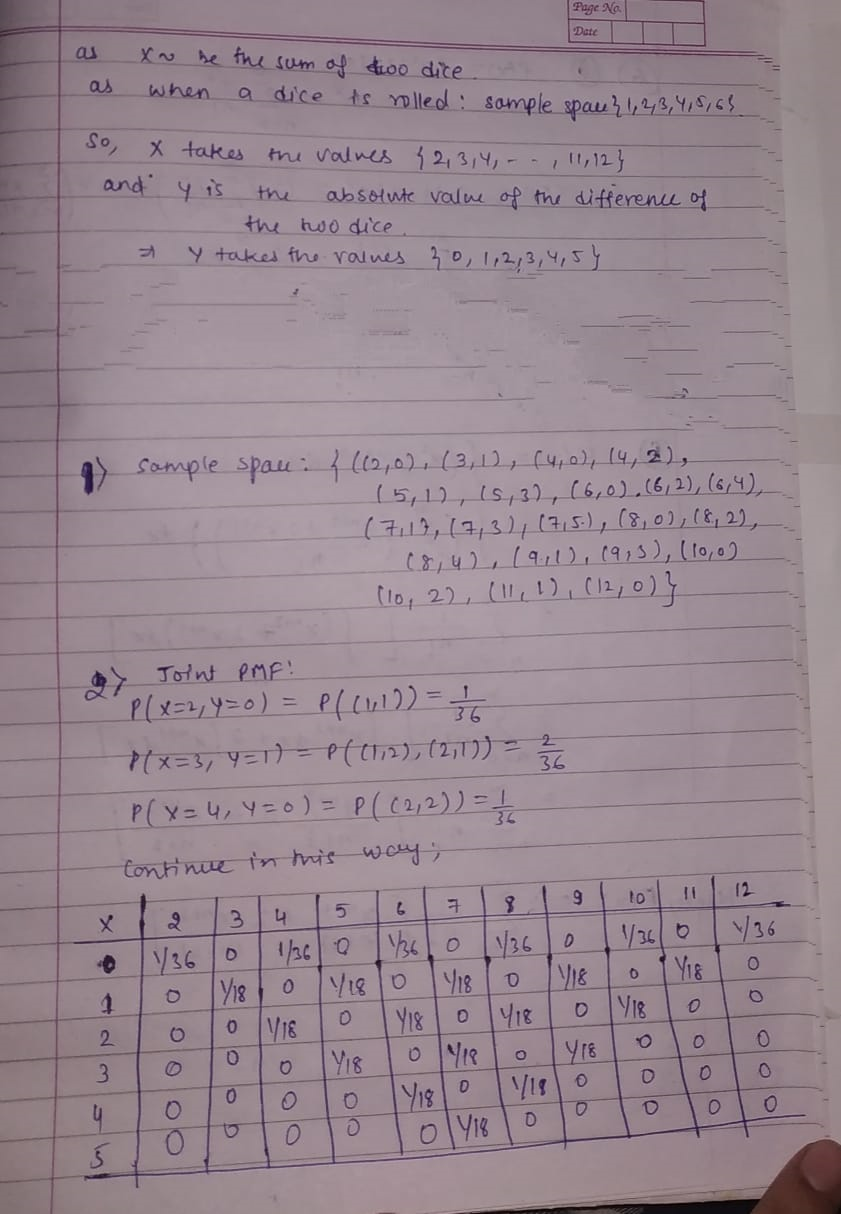 Page No.
Date
as X~ be the sum of two dice.
as when a dice is rolled: sample space {1,2,3,4,5,6}.
So, X takes the values {2,3,4,--,11,12}
and Y is the absolute value of the difference of
the two dice.
⇒ Y takes the values {0,1,2,3,4,5}
1> Sample space: {((2,0), (3,1), (4,0), (4,2),
(5,1), (5,3), (6,0), (6,2), (6,4),
(7,1), (7,3), (7,5), (8,0), (8,2),
(8,4), (9,1), (9,3), (10,0)
(10,2), (11,1), (12,0)}
2> Joint PMF:
P(X=2, Y=0) = P((1,1)) = 1/36
P(X=3, Y=1) = P((1,2),(2,1)) = 2/36
P(X=4, Y=0) = P((2,2)) = 1/36
Continue in this way;
X 2 3 4 5 6 7 8 9 10 11 12
0 1/36 0 1/36 0 1/36 0 1/36 0 1/36 0 1/36
1 0 1/18 0 1/18 0 1/18 0 1/18 0 1/18 0
2 0 0 1/18 0 1/18 0 1/18 0 1/18 0 0
3 0 0 0 1/18 0 1/18 0 1/18 0 0 0
4 0 0 0 0 1/18 0 1/18 0 0 0 0
5 0 0 0 0 0 1/18 0 0 0 0 0